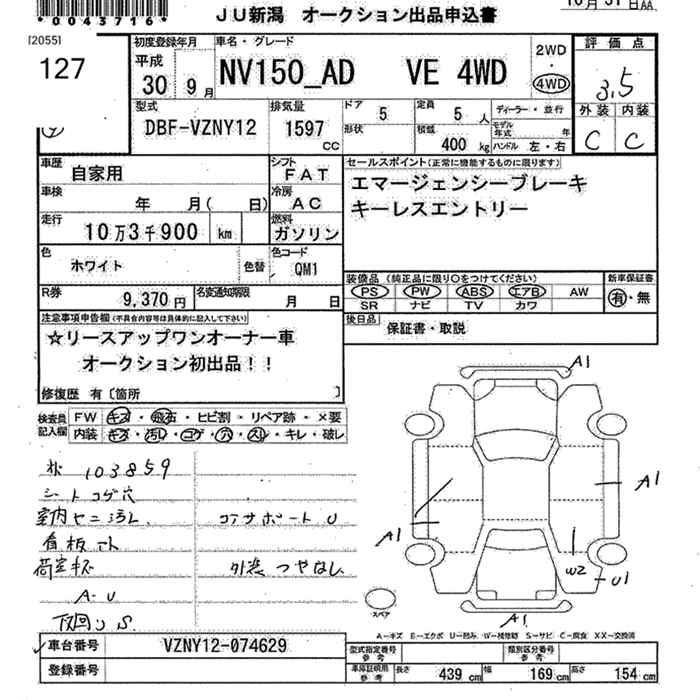 *0043716*
JU新潟 オークション出品申込書
10月31日AA
[2055]
127
初度登録年月
平成
30年 9月
車名・グレード
NV150_AD VE 4WD
2WD
・
4WD
評価点
3.5
外装 内装
C C
型式
DBF-VZNY12
排気量
1597 cc
ドア 5
形状
定員 5人
積載 400kg
ディーラー・並行
モデル年式 年
ハンドル 左・右
車歴
自家用
シフト
FAT
車検
年 月( 日)
冷房
AC
走行
10万3千900 km
燃料
ガソリン
色
ホワイト
色替
色コード
QM1
R券
9,370円
名変通知期限
月 日
セールスポイント(正常に機能するものに限ります)
エマージェンシーブレーキ
キーレスエントリー
装備品(純正品に限り○をつけてください)
PS PW ABS エアB AW
SR ナビ TV カワ
新車保証書
有・無
後日品
保証書・取説
注意事項申告欄(不具合内容等は具体的に記入して下さい)
☆リースアップワンオーナー車
オークション初出品!!
修復歴 有〔箇所 〕
検査員記入欄
FW キズ・飛石・ヒビ割・リペア跡・×要
内装 キズ・汚れ・コゲ・穴・スレ・キレ・破レ
103859
シートコゲ穴
室内ヤニ汚れ
コアサポートU
看板
荷室キズ
外装つやなし
A-U
下回りS
A1
A1
A1
W2
U1
A1
スペア
A-キズ E-エクボ U-凹み W-補修跡 S-サビ C-腐食 XX-交換済
車台番号
VZNY12-074629
登録番号
型式指定番号
参考
類別区分番号
参考
車庫証明用
参考
長さ 439cm 幅 169cm 高さ 154cm